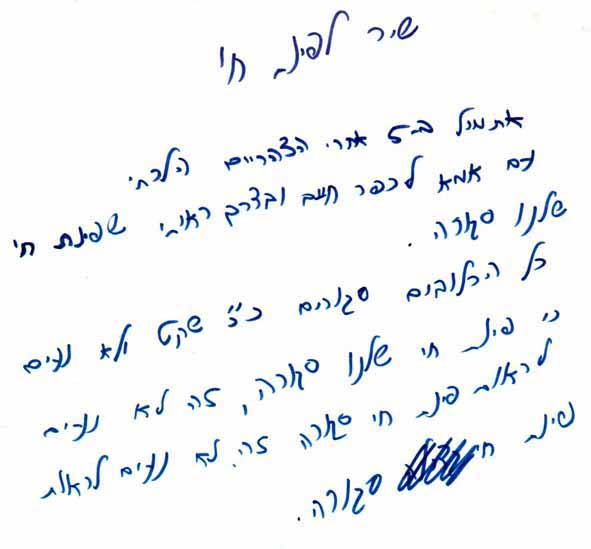 שיר לפינת חי
אתמול ב-5 אחרי הצהריים הלכתי
עם אמא לכפר חיטים ובדרך ראיתי שפינת חי
שלנו סגרה.
כל הכלובים סגורים כ"כ שקט ולא נעים
כי פינת חי שלנו סגרה, זה לא נעים
לראות פינת חי סגרה זה לא נעים לראות
פינת חי סגורה.